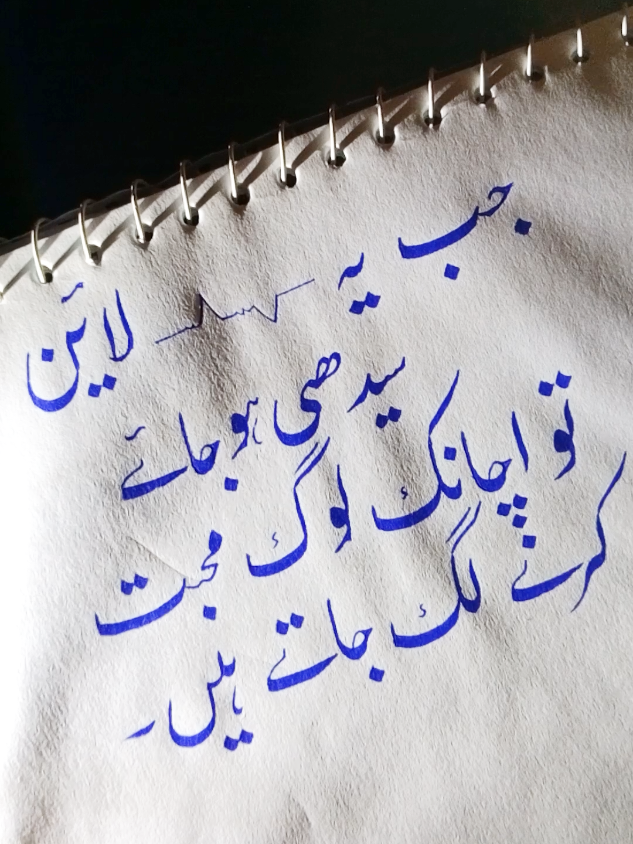 جب یہ لائن
سیدھی ہو جائے
تو اچانک لوگ محبت
کرنے لگ جاتے ہیں۔